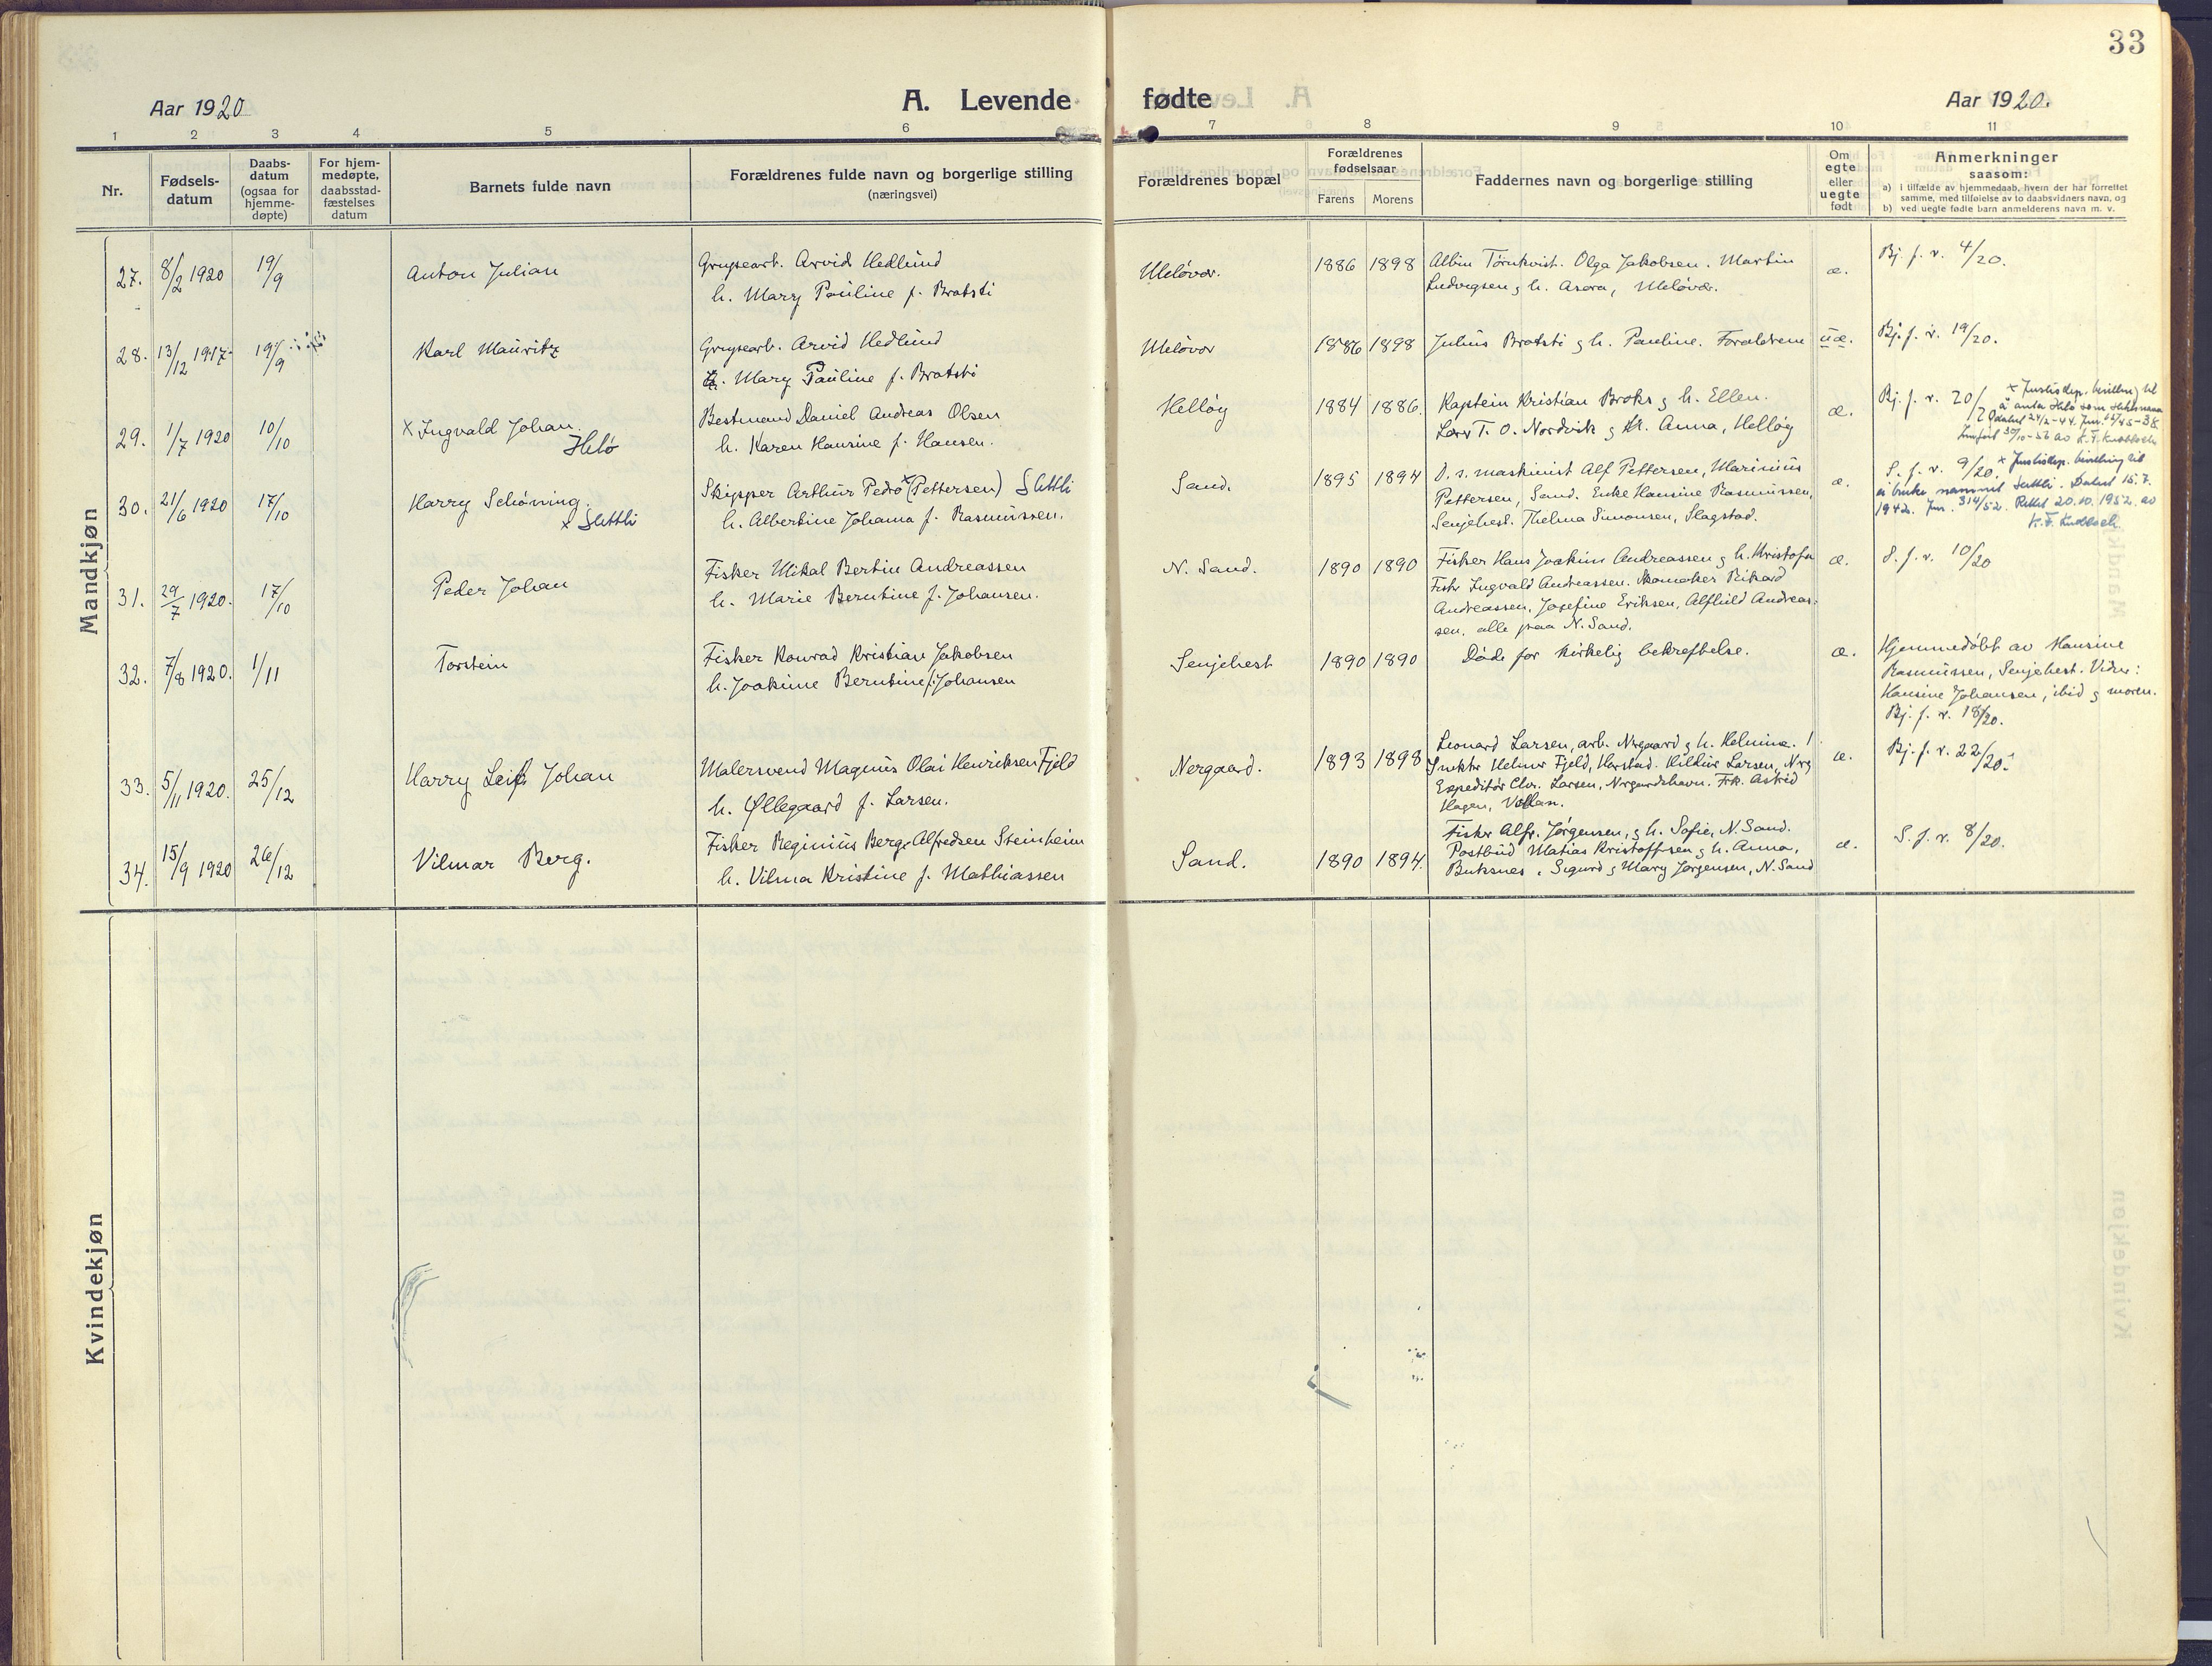 33
Aar 1920
A. Levende
fødte
Aar 1920.
1 2 3 4 5 6 7 8 9 10 11
Nr.
Fødsels-
datum
Daabs-
datum
(ogsaa for
hjemme-
døpte)
For hjem-
medøpte,
daabsstad-
fæstelses
datum
Barnets fulde navn
Forældrenes fulde navn og borgerlige stilling
(næringsvei)
Forældrenes bopæl
Forældrenes
fødselsaar
Farens Morens
Faddernes navn og borgerlige stilling
Om
egte
eller
uegte
født
Anmerkninger
saasom:
a) i tilfælde av hjemmedaab, hvem der har forrettet
samme, med tilføielse av to daabsvidners navn, og
b) ved uegte fødte barn anmelderens navn m. v.
Mandkjøn
27. 8/2 1920 19/9 Anton Julian
Grusearb. Arvid Hedlund
h. Mary Pauline f. Bratsti
Meløvær. 1886 1898
Albin Törnkvist. Olga Jakobsen. Martin
Ludvigsen og h. Asora, Meløvær.
æ. Bj. f. r. 4/20.
28. 13/12 1917 19/9 Karl Mauritz
Grusearb. Arvid Hedlund
h. Mary Pauline f. Bratsti
Meløvær 1886 1898
Julius Bratsti og h. Pauline. Forældrene
uæ. Bj. f. r. 19/20.
29. 1/7 1920 10/10 x Ingvald Johan.
Helø
Bestmand Daniel Andreas Olsen
h. Karen Hansine f. Hansen.
Helløy 1884 1886.
Kaptein Kristian Broks og h. Ellen.
Lærer T. O. Nordvik og h. Anna, Helløy
æ. Bj. f. r. 20/20
x Justisdep. bevilling til
å anta Helø som slektsnavn
datert 24/2-44. Jnr.
Innført 30/10-52 av K. F. Knobloch
30. 21/6 1920 17/10 Harry Schøning.
x Slettli
Skipper Arthur Pedro x (Pettersen) Slettli
h. Albertine Johanna f. Rasmussen.
Sand. 1895 1894
D. s. maskinist Alf Pettersen, Marinius
Pettersen, Sand. Enke Hansine Rasmussen,
Senjehest. Thelma Simonsen, Slagstad.
æ. S. f. r. 9/20. x Justisdep. bevilling til
å bruke namnet Slettli. Datert 15.7.
1942. Jnr. 314/52. Rettet 20.10.1952 av
K. F. Knobloch
31. 29/7 1920. 17/10 Peder Johan
Fisker Mikal Bertin Andreassen
h. Marie Berntine f. Johansen.
N. Sand. 1890 1890
Fisker Hans Joakim Andreassen og h. Kristofa
Fiskr Ingvald Andreassen. Skomaker Rikard
Andreassen, Josefine Eriksen, Alfhild Andreas-
sen, alle paa N. Sand.
æ. S. f. r. 10/20
32. 7/8 1920. 1/11 Torstein
Fisker Konrad Kristian Jakobsen
h. Joakime Berntine f. Johansen
Senjehest 1890 1890
Døde før kirkelig bekreftelse.
æ. Hjemmedøbt av Hansine
Rasmussen, Senjehest. Vidner:
Hansine Johansen, ibid og moren.
Bj. f. r. 18/20.
33. 5/11 1920. 25/12 Harry Leif Johan
Malersvend Magnus Olai Henriksen Fjeld
h. Øllegaard f. Larsen.
Nergaard. 1893 1898
Leonard Larsen, arb. Nrgaard og h. Helmine.
Snekkr Helmer Fjeld, Harstad. Larsen, Nrg
Expeditør Chr. Larsen, Nrgaardshavn. Frk. Astrid
Hagen, Vollan.
æ. Bj. f. r. 22/20.
34. 15/9 1920 26/12 Vilmar Berg.
Fisker Reginius Berg Alfredsen Steinheim
h. Vilma Kristine f. Mathiassen
Sand. 1890 1894.
Fiskr Alfr. Jørgensen, og h. Sofie, N. Sand.
Postbud Matias Kristoffersen og h. Anna,
Buksnes. Sigurd og Mary Jørgensen, N. Sand
æ. S. f. r. 8/20.
Kvindekjøn